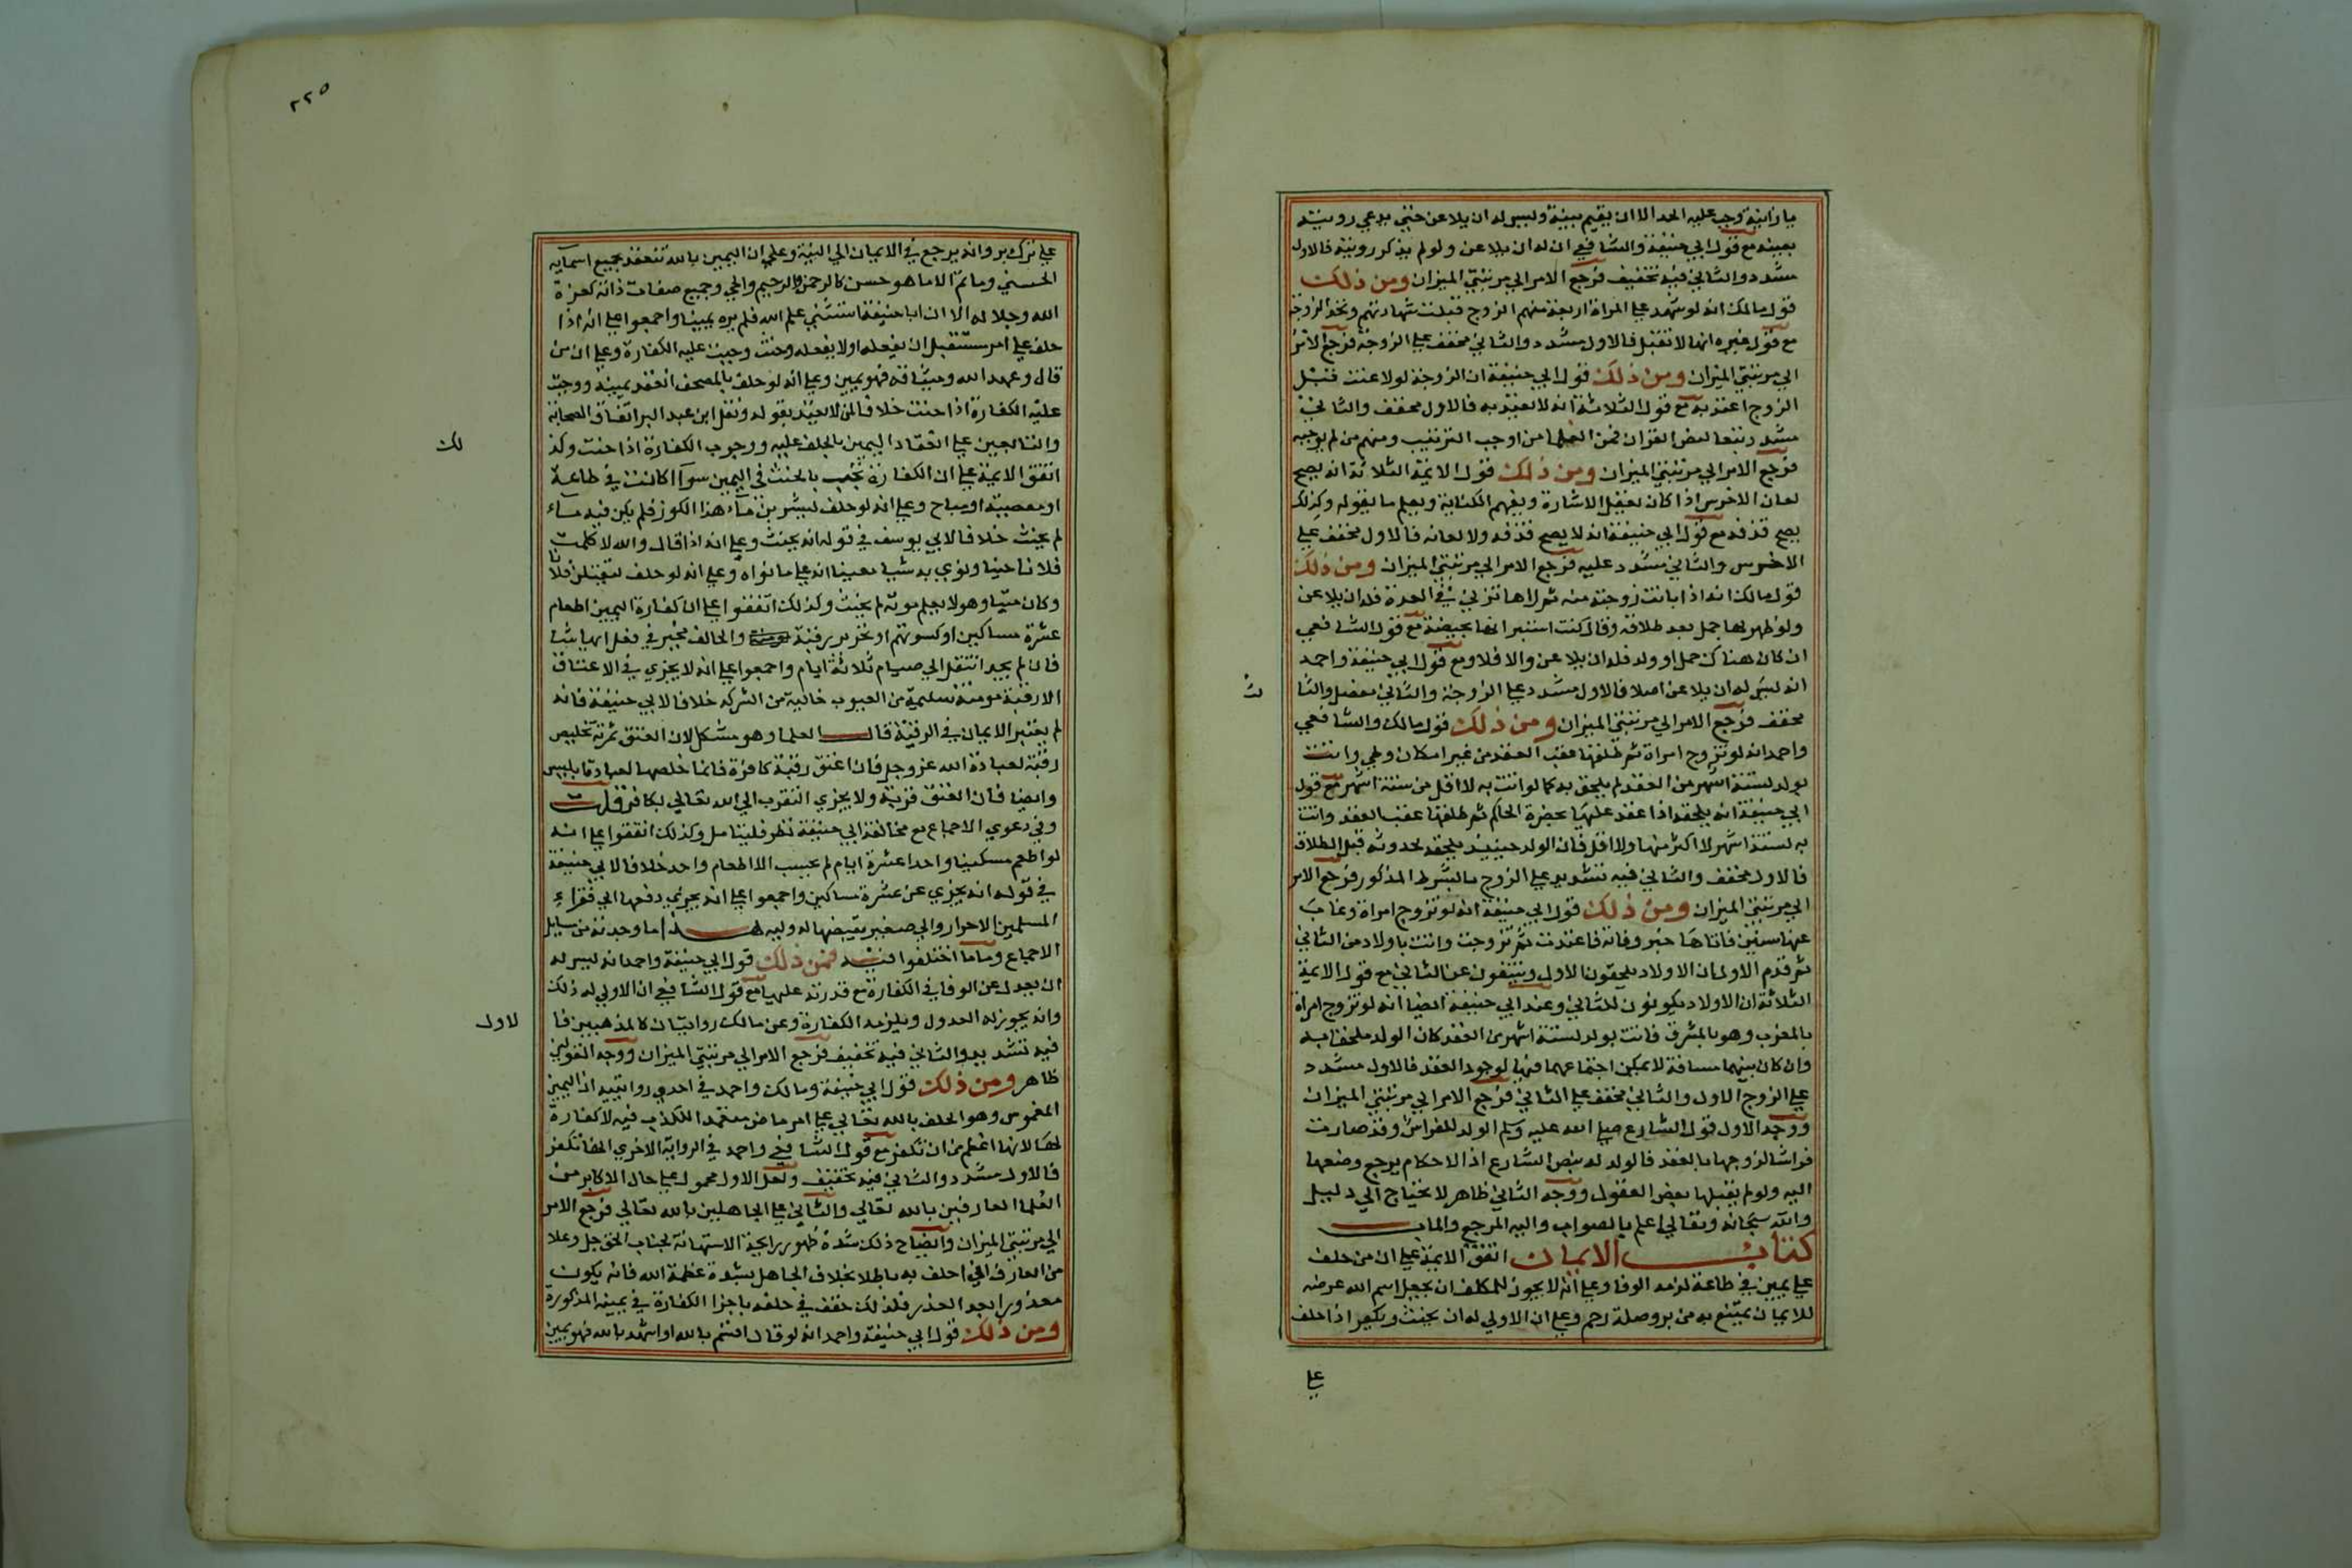 يا زانية وجب عليه الحد الا ان يقيم بينة وليس له ان يلاعن حتي يدعي روية
بعينه مع قول ابي حنيفة والشافعي ان له ان يلاعن ولو لم يذكر روية فالاول
مشدد والثاني فيه تخفيف فرجع الامر الي مرتبتي الميزان ومن ذلك
قول مالك انه لو شهد علي المراة اربعة منهم الزوج قبلت شهادتهم وتحد الزوجة
مع قول غيره انها لا تقبل فالاول مشدد والثاني مخفف علي الزوجة فرجع الامر
الي مرتبتي الميزان ومن ذلك قول ابي حنيفة ان الزوجة لو لاعنت قبل
الزوج اعتد به مع قول الثلاثة انه لا يعتد به فالاول مخفف والثاني
مشدد تبعا لبعض القران فمن العلما من اوجب الترتيب ومنهم من لم يوجبه
فرجع الامر الي مرتبتي الميزان ومن ذلك قول الايمة الثلاثة انه يصح
لعان الاخرس اذا كان يعقل الاشارة ويفهم الكتابة ويعلم ما يقوله وكذلك
يصح قذفه مع قول ابي حنيفة انه لا يصح قذفه ولا لعانه فالاول مخفف علي
الاخرس والثاني مشدد عليه فرجع الامر الي مرتبتي الميزان ومن ذلك
قول مالك انه اذا بانت زوجته منه ثم راها تزني في العدة فله ان يلاعن
ولو ظهر بها حمل بعد طلاقه وقال كنت استبراتها بحيضة مع قول الشافعي
ان كان هناك حمل او ولد فله ان يلاعن والا فلا ومع قول ابي حنيفة واحمد
انه ليس له ان يلاعن اصلا فالاول مشدد علي الزوجة والثاني مفصل والثا
لث
مخفف فرجع الامر الي مرتبتي الميزان ومن ذلك قول مالك والشافعي
واحمد انه لو تزوج امراة ثم طلقها عقب العقد من غير امكان وطي واتت
بولد لستة اشهر من العقد لم يلحق به كما لو اتت به لاقل من ستة اشهر مع قول
ابي حنيفة انه يلحقه اذا عقد عليها بحضرة الحاكم ثم طلقها عقب العقد واتت
به لستة اشهر لا اكثر منها ولا اقل فان الولد حينيذ يلحقه لحدوثه قبل الطلاق
فالاول مخفف والثاني فيه تشديد علي الزوج بالشرط المذكور فرجع الامر
الي مرتبتي الميزان ومن ذلك قول ابي حنيفة انه لو تزوج امراة وغاب
عنها سنين فاتاها خبر وفاته فاعتدت ثم تزوجت واتت باولاد من الثاني
ثم قدم الاول ان الاولاد يلحقون الاول وينتفون عن الثاني مع قول الايمة
الثلاثة ان الاولاد يكونون للثاني وعند ابي حنيفة ايضا انه لو تزوج امراة
بالمغرب وهو بالمشرق فاتت بولد لستة اشهر من العقد كان الولد ملحقا به
وان كان بينهما مسافة لا يمكن اجتماعهما فيها لوجود العقد فالاول مشدد
علي الزوج الاول والثاني مخفف علي الثاني فرجع الامر الي مرتبتي الميزان
ووجه الاول قول الشارع صلي الله عليه وسلم الولد للفراش وقد صارت
فراشا لزوجها بالعقد فالولد له بنص الشارع اذ الاحكام يرجع وضعها
اليه ولو لم يقبلها بعض العقول ووجه الثاني ظاهر لا يحتاج الي دليل
والله سبحانه وتعالي اعلم بالصواب واليه المرجع والماب
كتاب الايمان اتفق الايمة علي ان من حلف
علي يمين في طاعة لزمه الوفا وعلي انه لا يجوز للمكلف ان يجعل اسم الله عرضه
للايمان يمتنع به من بر وصلة رحم وعلي ان الاولي له ان يحنث ويكفر اذا حلف
علي
٢٢٥
علي ترك بر وانه يرجع في الايمان الي النية وعلي ان اليمين بالله تنعقد بجميع اسمآيه
الحسني وما ثم الا ما هو حسن كالرحمن والرحيم والحي وجميع صفات ذاته كعزة
الله وجلاله الا ان ابا حنيفة استثني علم الله فلم يره يمينا واجمعوا علي انه اذا
حلف علي امر مستقبل ان يفعله او لا يفعله وحنث وجبت عليه الكفارة وعلي ان من
قال وعهد الله وميثاقه فهو يمين وعلي انه لو حلف بالمصحف انعقد يمينه ووجبت
عليه الكفارة اذا حنث خلافا لمن لا يعتد بقوله ونقل ابن عبد البر اتفاق الصحابة
والتابعين علي انعقاد اليمين بالحلف عليه ووجوب الكفارة اذا حنث وكذ
لك
اتفق الايمة علي ان الكفارة تجب بالحنث في اليمين سوآ اكانت في طاعة
او معصية او مباح وعلي انه لو حلف ليشربن مآء هذا الكوز فلم يكن فيه مآء
لم يحنث خلافا لابي يوسف في قوله انه يحنث وعلي انه اذا قال والله لا كلمت
فلانا حينا ونوي به شيا معينا انه علي ما نواه وعلي انه لو حلف ليقتلن فلانا
وكان ميتا وهو لا يعلم موته لم يحنث وكذلك اتفقوا علي ان كفارة اليمين اطعام
عشرة مساكين او كسوتهم او تحرير رقبة والحالف مخير في فعل ايها شا
فان لم يجد انتقل الي صيام ثلاثة ايام واجمعوا علي انه لا يجزي في الاعتاق
الا رقبة مومنة سليمة من العيوب خالية من الشركه خلافا لابي حنيفة فانه
لم يعتبر الايمان في الرقبة قال العلما وهو مشكل لان العتق ثمرته تخليص
رقبة لعبادة الله عز وجل فان اعتق رقبة كافرة فانما خلصها لعبادة ابليس
وايضا فان العتق قربة ولا يجزي التقرب الي الله تعالي بكافر قلت
وفي دعوي الاجماع مع مخالفة ابي حنيفة نظر فليتامل وكذلك اتفقوا علي انه
لو اطعم مسكينا واحدا عشرة ايام لم يحسب الا اطعام واحد خلافا لابي حنيفة
في قوله انه يجزي عن عشرة مساكين واجمعوا علي انه يجزي دفعها الي فقراء
المسلمين الاحرار والي صغير يقبضها له وليه هذا ما وجدته من مسايل
الاجماع واما ما اختلفوا فيه فمن ذلك قول ابي حنيفة واحمد انه ليس له
ان يعدل عن الوفا في الكفارة مع قدرته عليها مع قول الشافعي ان الاولي له ذلك
وانه يجوز له العدول ويلزمه الكفارة وعن مالك روايتان كالمذهبين فا
لاول
فيه تشديد والثاني فيه تخفيف فرجع الامر الي مرتبتي الميزان ووجه القولين
ظاهر ومن ذلك قول ابي حنيفة ومالك واحمد في احدي روايتيه ان اليمين
الغموس وهو الحلف بالله تعالي علي امر ماض متعمد الكذب فيه لا كفارة
لها لانها اعظم من ان تكفر مع قول الشافعي واحمد في الرواية الاخري انها تكفر
فالاول مشدد والثاني فيه تخفيف ولعل الاول محمول علي حال الاكابر من
العلما العارفين بالله تعالي والثاني علي الجاهلين بالله تعالي فرجع الامر
الي مرتبتي الميزان وايضاح ذلك شدة ظهور رايحة الاستهانة بجناب الحق جل وعلا
من العارف اذا حلف به باطلا بخلاف الجاهل بشدة عظمة الله فانه يكون
معذورا بعد الحذر فلذلك خفف في حلفه باجزا الكفارة في يمينه المذكورة
ومن ذلك قول ابي حنيفة واحمد انه لو قال اقسم بالله او اشهد بالله فهو يمين